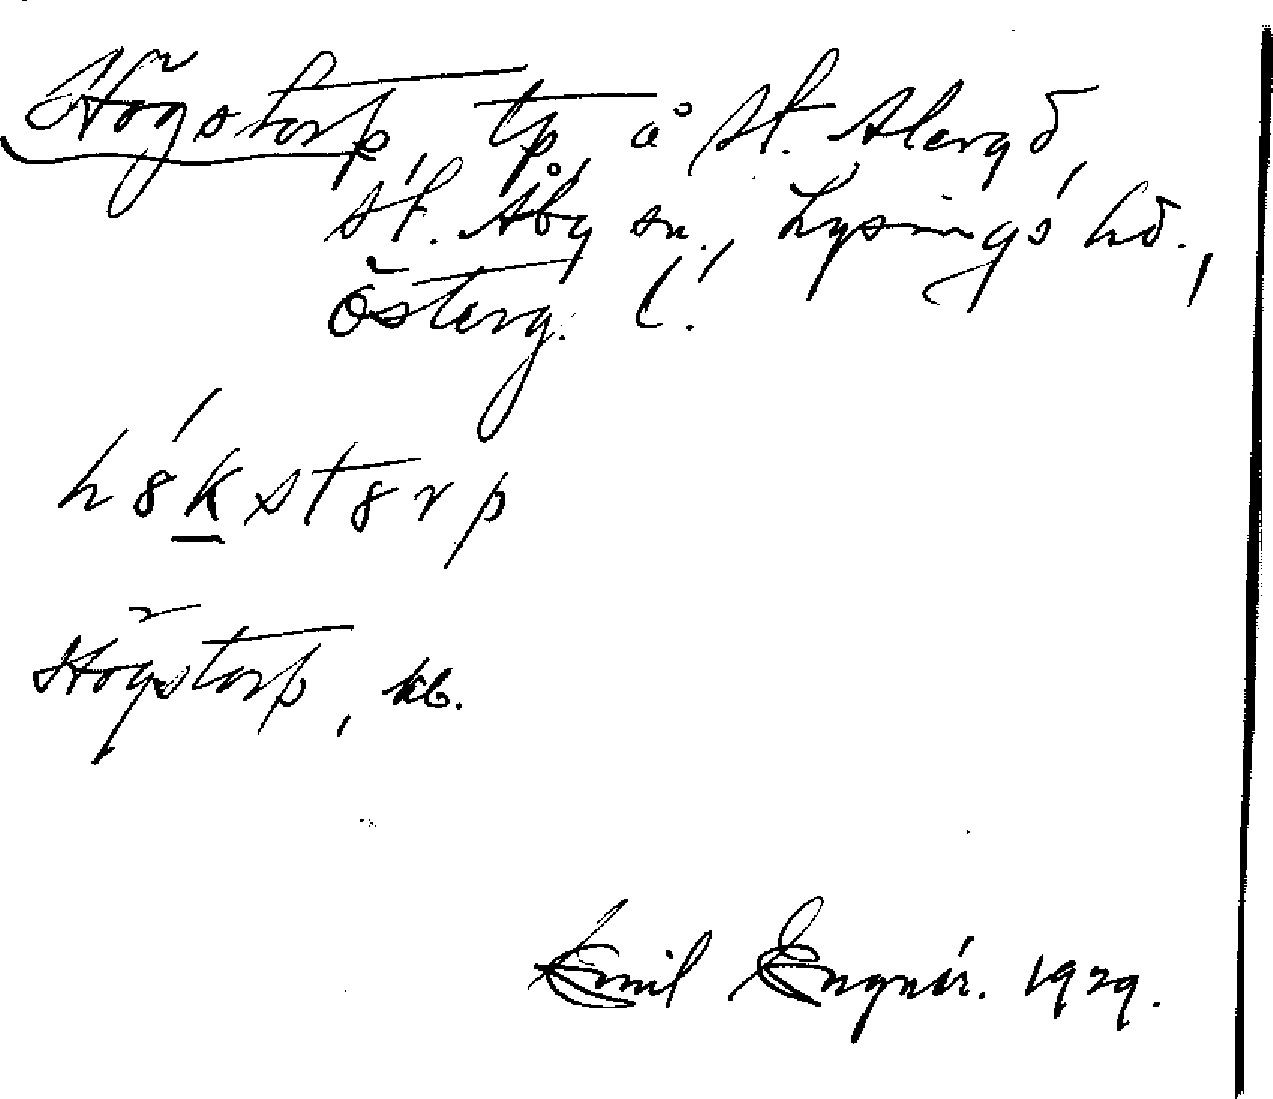 Högstorp, tp, å St. Alergd,
St. Åby sn., Lysings hd.,
Österg. l.
h8́kst8rp
Högstorp, kb.
Emil Engnér. 1929.